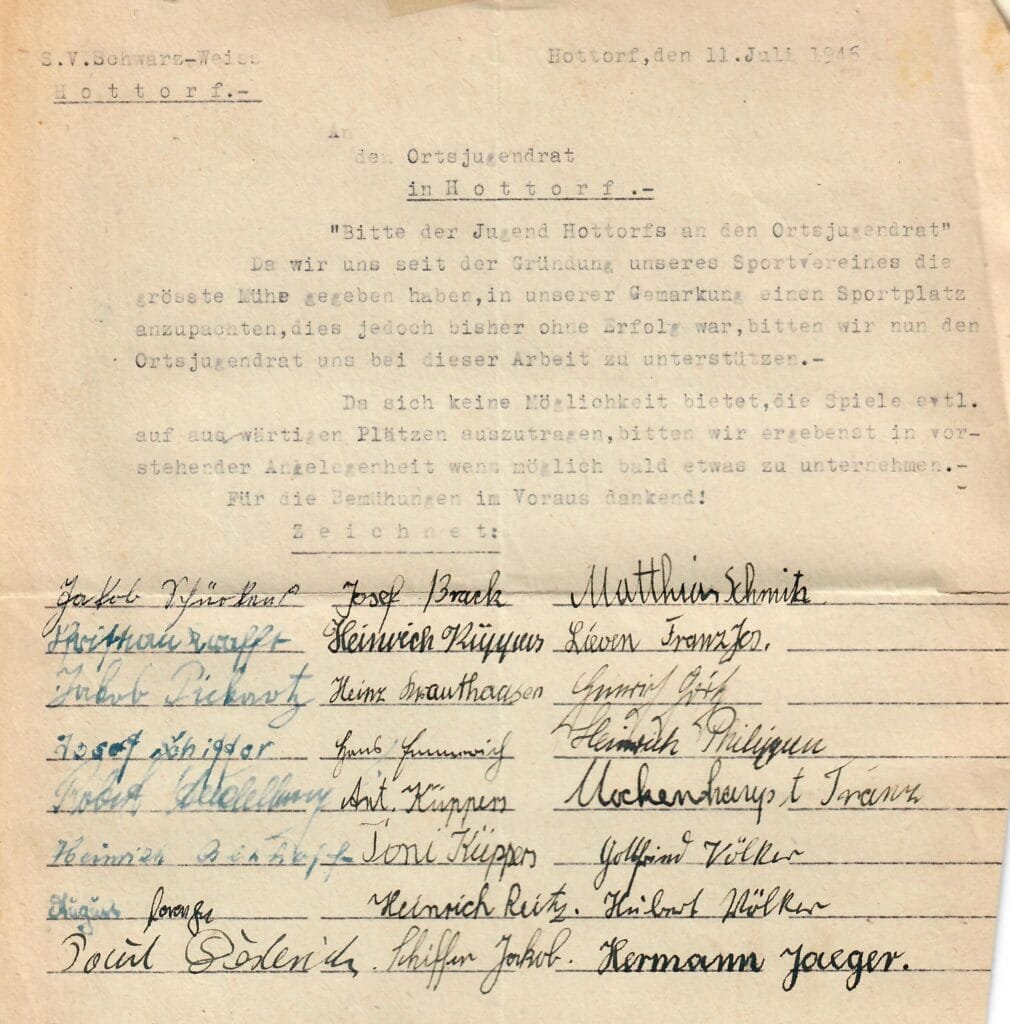 S.V.Schwarz-Weiss Hottorf,den 11.Juli 1946
Hottorf.-
An
den Ortsjugendrat
in Hottorf.-
"Bitte der Jugend Hottorfs an den Ortsjugendrat"
Da wir uns seit der Gründung unseres Sportvereines die
grösste Mühe gegeben haben,in unserer Gemarkung einen Sportplatz
anzupachten,dies jedoch bisher ohne Erfolg war,bitten wir nun den
Ortsjugendrat uns bei dieser Arbeit zu unterstützen.-
Da sich keine Möglichkeit bietet,die Spiele evtl.
auf auswärtigen Plätzen auszutragen,bitten wir ergebenst in vor-
stehender Angelegenheit wenn möglich bald etwas zu unternehmen.-
Für die Bemühungen im Voraus dankend!
Zeichnet:
Jakob Josef Brack Matthias Schmitz
Heinrich Küppers Lieven Franz Jos.
Jakob Pickartz Heinz Krauthausen
Josef Schiffer Hans Emmerich Heinrich Philippen
Ant. Küppers Mockenhaupt Franz
Heinrich Toni Küppers Gottfried Völker
Heinrich Reitz. Hubert Völker
Paul Schiffer Jakob. Hermann Jaeger.